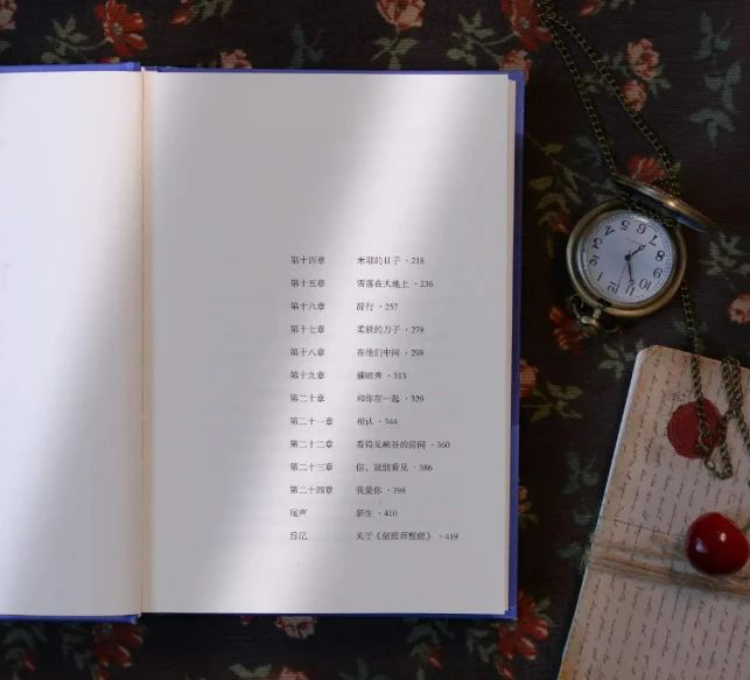 第十四章 米耶的日子 · 218
第十五章 雪落在大地上 · 236
第十六章 苟行 · 257
第十七章 柔软的刀子 · 278
第十八章 在他们中间 · 298
第十九章 催眠秀 · 313
第二十章 和你在一起 · 329
第二十一章 相认 · 344
第二十二章 看得见峡谷的房间 · 360
第二十三章 信,就能看见 · 386
第二十四章 我爱你 · 398
尾声 新生 · 410
后记 关于《催眠师甄妮》 · 419